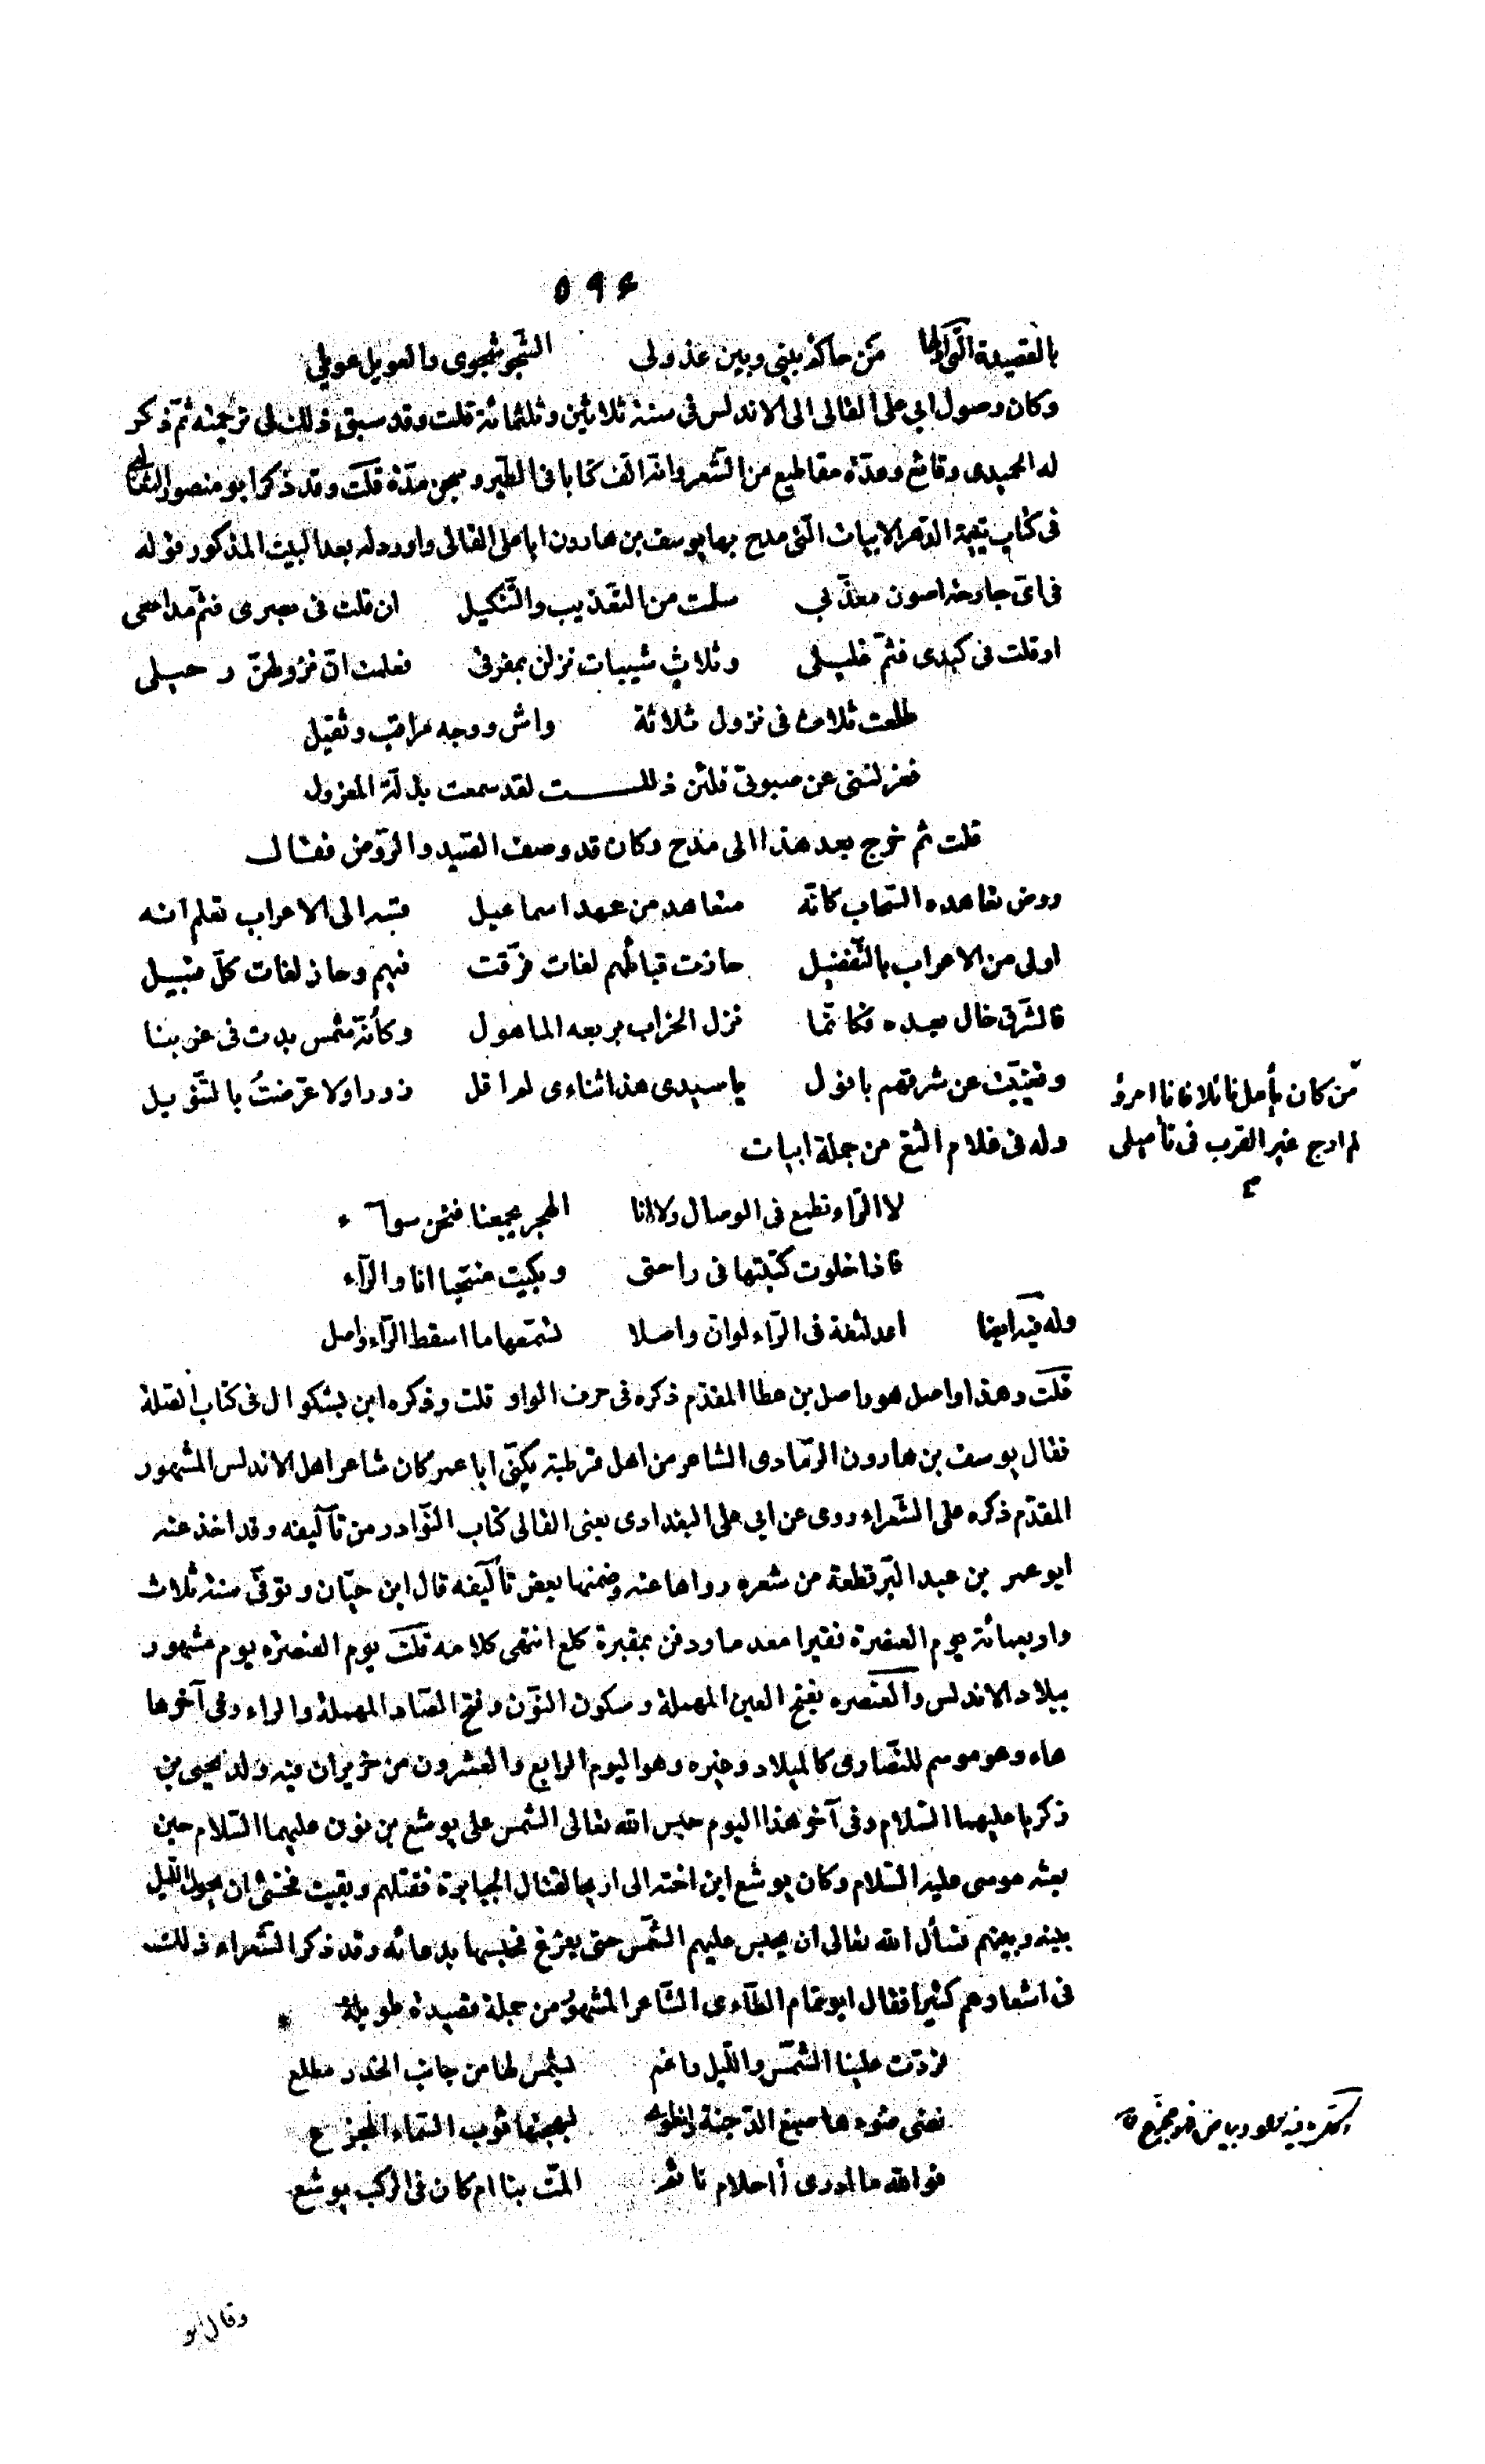 ٥٩٤
بالقصيدة التى اولها من حاكم بينى وبين عذولى الشجو شجوى والعويل عويلى
وكان وصول ابى على القالى الى الاندلس فى سنة ثلاثين وثلثمائة قلت وقد سبق ذلك فى ترجمته ثم ذكر
له الحميدى وقائع وعدّة مقاطيع من الشعر وانه الف كتابا فى الطير وسجن مدّة قلت وقد ذكر ابو منصور الثعالبى
فى كتاب يتيمة الدّهر الابيات الّتى مدح بها يوسف بن هارون ابا على القالى واورد له بعد البيت المذكور قوله
فى اىّ جارحة اصون معذّبى سلمت من التعذيب والتّنكيل ان قلت فى بصرى فثمّ مدامعى
او قلت فى كبدى فثمّ غليلى وثلاث شيبات نزلن بمفرقى فعلمت انّ نزولهنّ رحيلى
طلعت ثلاث فى نزول ثلاثة واش ووجه مراقب وثقيل
فعزلننى عن صبوتى فلئن ذللت لقد سمعت بذلّة المعزول
قلت ثم خرج بعد هذا الى مدح وكان قد وصف الصيد والرّوض فقال
روض تعاهده السّحاب كانّه متعاهد من عهد اسماعيل قسه الى الاعراب تعلم انه
اولى من الاعراب بالتّفضيل حازت قبائلهم لغات فرّقت فيهم وحاز لغات كلّ قبيل
فالشّرق خال بعده فكانّما نزل الخراب بربعه الماهول وكأنّه شمس بدت فى غربنا
وتغيّبت عن شرقهم بافول يا سيدى هذا ثناءى لم اقل زورا ولا عرّضتُ بالتّنويل
من كان يأمل نائلا فانا امرؤ
لم ارج غير القرب فى تأميلى
وله فى غلام الثغ من جملة ابيات
لا الرّاء تطمع فى الوصال ولا انا الهجر يجمعنا فنحن سواء
فاذا خلوت كتبتها فى راحتى وبكيت منتحبا انا والرّاء
وله فيه ايضا اعد لثغة فى الرّاء لو انّ واصلا تسمّعها ما اسقط الرّاء واصل
قلت وهذا واصل هو واصل بن عطا المقدّم ذكره فى حرف الواو قلت وذكره ابن بشكوال فى كتاب الصّلة
فقال يوسف بن هارون الرّمادى الشاعر من اهل قرطبة يكنّى ابا عمر كان شاعر اهل الاندلس المشهور
المقدّم ذكره على الشّعراء روى عن ابى على البغدادى يعنى القالى كتاب النّوادر من تآليفه وقد اخذ عنه
ابو عمر بن عبد البرّ قطعة من شعره رواها عنه وضمنها بعض تآليفه قال ابن حيّان وتوفّى سنة ثلاث
واربعمائة يوم العنصرة فقيرا معدما ودفن بمقبرة كلع انتهى كلامه قلت يوم العنصره يوم مشهور
ببلاد الاندلس والعنصره بفتح العين المهملة وسكون النوّن وفتح الصّاد المهملة والراء وفى آخرها
هاء وهو موسم للنّصارى كالميلاد وغيره وهو اليوم الرابع والعشرون من حزيران فيه ولد يحيى بن
زكريا عليهما السّلام وفى آخر هذا اليوم حبس الله تعالى الشمس على يوشع بن نون عليهما السّلام حين
بعثه موسى عليه السّلام وكان يوشع ابن اخته الى اريحا لقتال الجبابرة فقتلهم وبقيت فخشى ان يحول اللّيل
بينه وبينهم فسأل الله تعالى ان يحبس عليهم الشّمس حتى يفرغ فحبسها بدعائه وقد ذكر الشّعراء ذلك
فى اشعارهم كثيرا فقال ابو تمام الطّاءى الشّاعر المشهور من جملة قصيدة طويلة
فردّت علينا الشّمس واللّيل راغم بشمس لها من جانب الخدر مطلع
نضى ضوءها صبغ الدّجنة وانطوى لبهجتها ثوب السّماء المجزع
فو الله ما ادرى أاحلام نائم المّت بنا ام كان فى الركب يوشع
وقال ابو